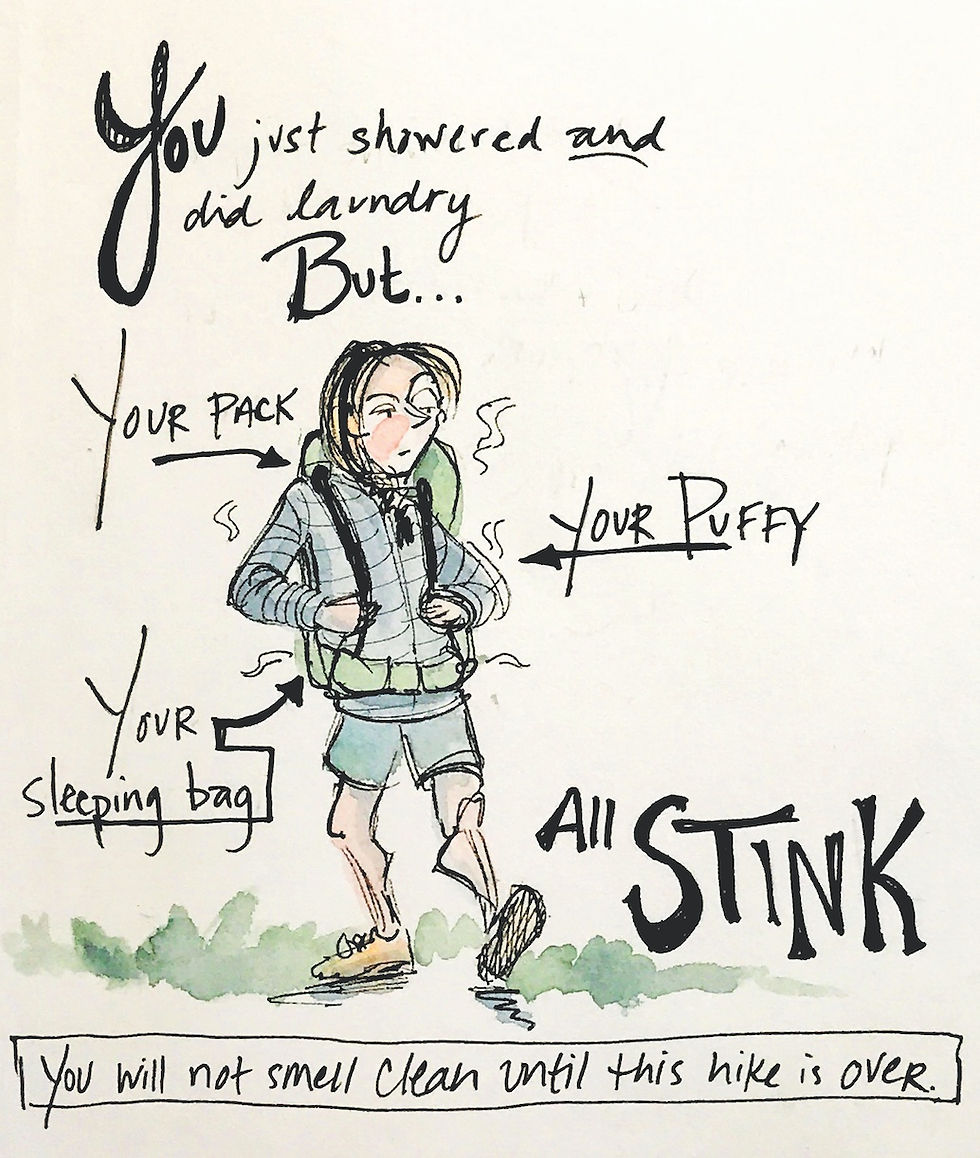 You just showered and
did laundry
But...
YOUR PACK
YOUR PUFFY
YOUR
sleeping bag
All STINK
You will not smell clean until this hike is over.